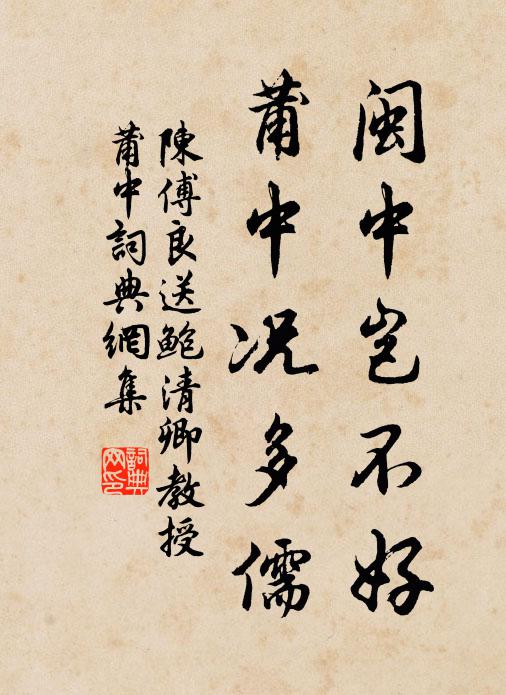 閩中豈不好
莆中况多儒
陳傅良送鮑清卿教授
莆中詞典網集
詞典
网印